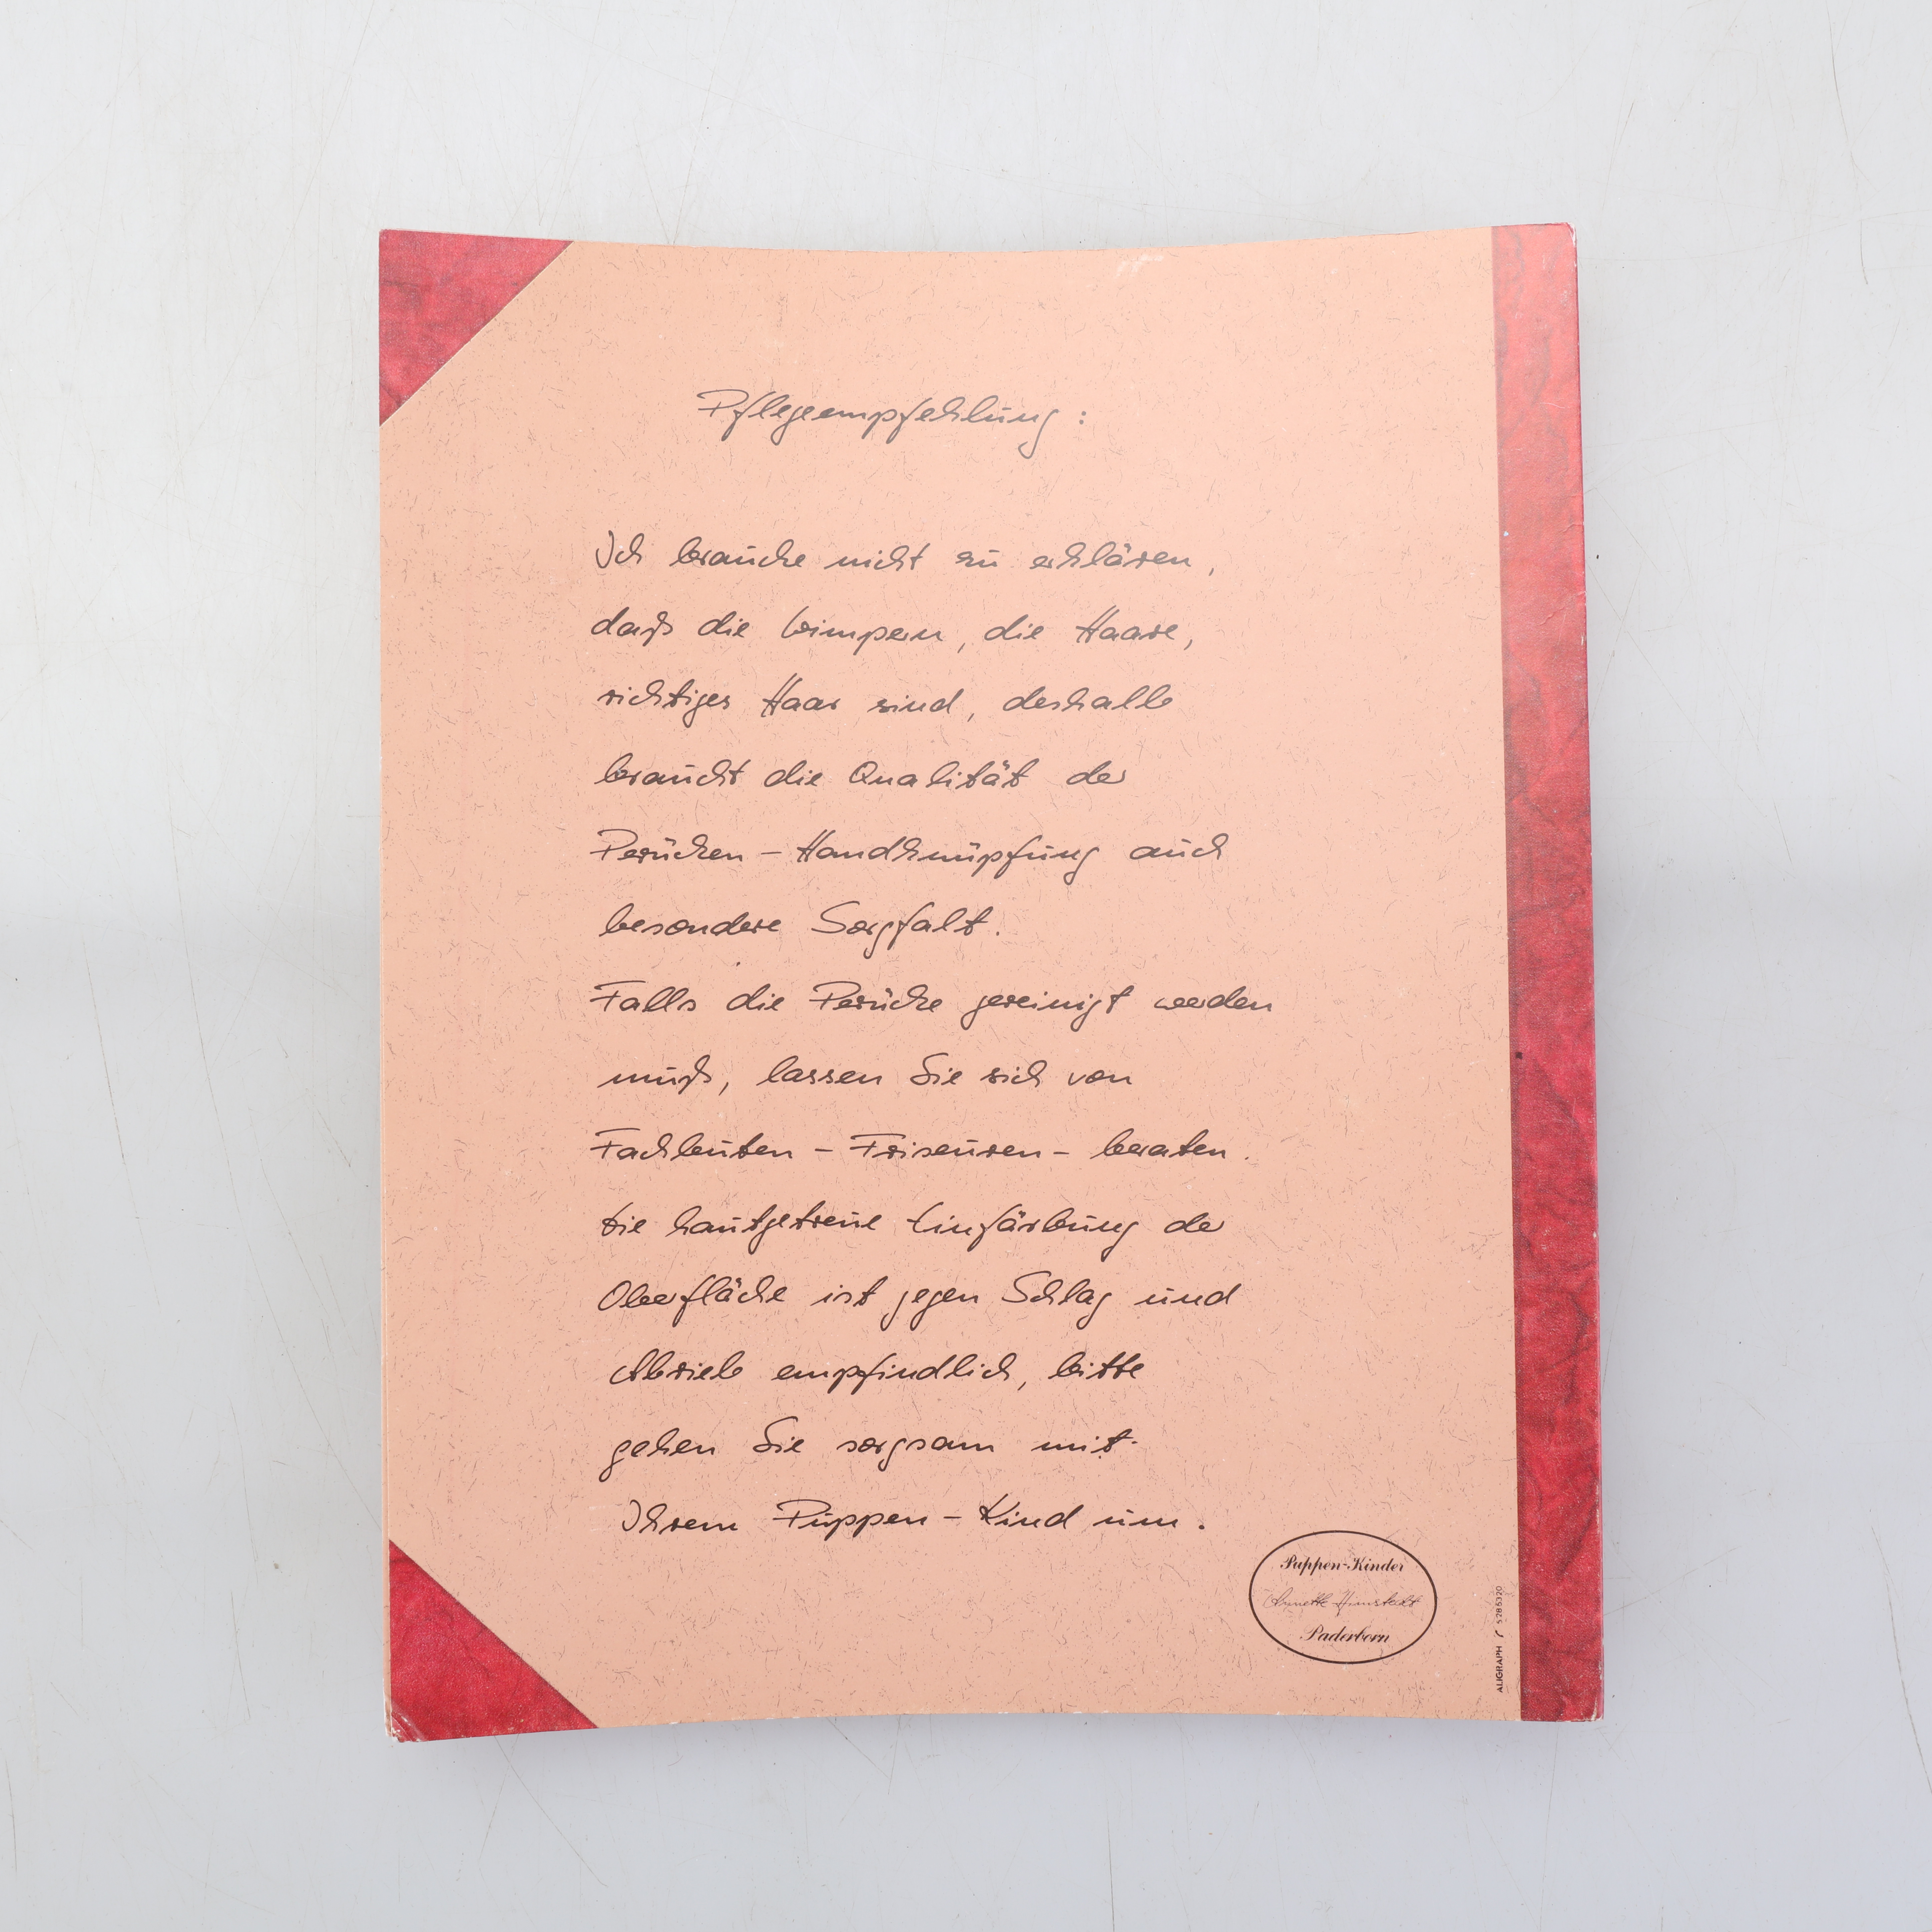 Pflegeempfehlung:
Ich brauche nicht zu erklären,
daß die Wimpern, die Haare,
richtiges Haar sind, deshalb
braucht die Qualität der
Perücken-Handknüpfung auch
besondere Sorgfalt.
Falls die Perücke gereinigt werden
muß, lassen Sie sich von
Fachleuten - Friseuren - beraten.
Die hautgetreue Einfärbung der
Oberfläche ist gegen Schlag und
Abrieb empfindlich, bitte
gehen Sie sorgsam mit
Ihrem Puppen-Kind um.
Puppen-Kinder
Annette Himstedt
Paderborn
ALIGRAPH 5 28 53 20